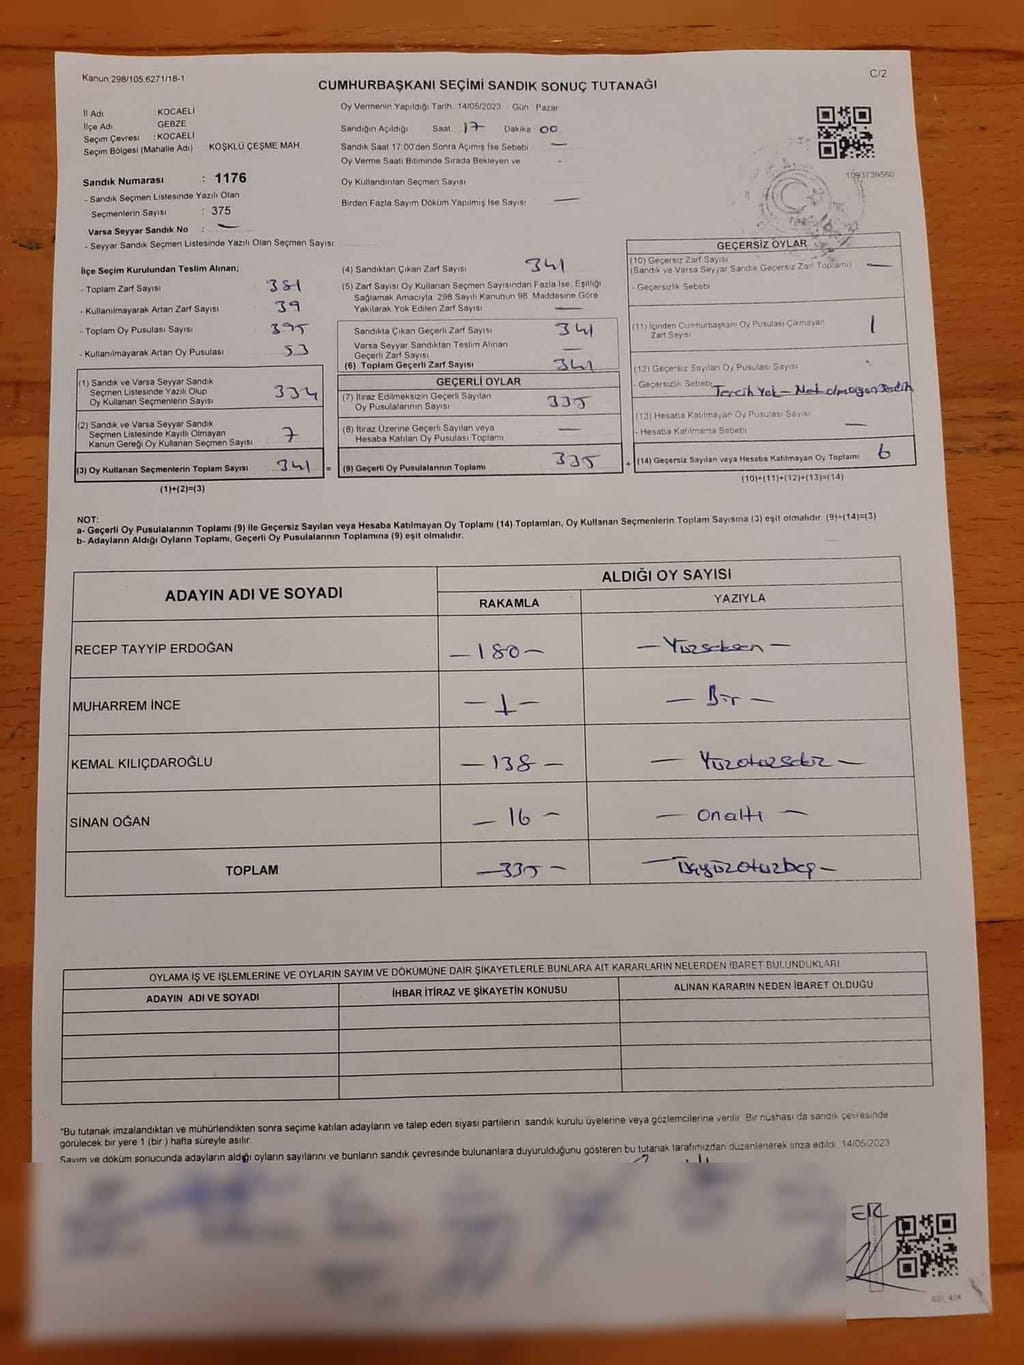 Kanun:298/105,6271/18-1
C/2
CUMHURBAŞKANI SEÇİMİ SANDIK SONUÇ TUTANAĞI
İl Adı KOCAELİ
İlçe Adı GEBZE
Seçim Çevresi :KOCAELİ
Seçim Bölgesi (Mahalle Adı) KÖŞKLÜ ÇEŞME MAH
Sandık Numarası : 1176
- Sandık Seçmen Listesinde Yazılı Olan
Seçmenlerin Sayısı : 375
Varsa Seyyar Sandık No : —
- Seyyar Sandık Seçmen Listesinde Yazılı Olan Seçmen Sayısı
Oy Vermenin Yapıldığı Tarih 14/05/2023 Gün Pazar
Sandığın Açıldığı Saat 17 Dakika 00
Sandık Saat 17.00'den Sonra Açılmış İse Sebebi —
Oy Verme Saati Bitiminde Sırada Bekleyen ve
Oy Kullandırılan Seçmen Sayısı
Birden Fazla Sayım Döküm Yapılmış İse Sayısı —
1093739560
İlçe Seçim Kurulundan Teslim Alınan;
- Toplam Zarf Sayısı 381
- Kullanılmayarak Artan Zarf Sayısı 39
- Toplam Oy Pusulası Sayısı 395
- Kullanılmayarak Artan Oy Pusulası 53
(1) Sandık ve Varsa Seyyar Sandık
Seçmen Listesinde Yazılı Olup
Oy Kullanan Seçmenlerin Sayısı 334
(2) Sandık ve Varsa Seyyar Sandık
Seçmen Listesinde Kayıtlı Olmayan
Kanun Gereği Oy Kullanan Seçmen Sayısı 7
(3) Oy Kullanan Seçmenlerin Toplam Sayısı 341 =
(1)+(2)=(3)
(4) Sandıktan Çıkan Zarf Sayısı 341
(5) Zarf Sayısı Oy Kullanan Seçmen Sayısından Fazla İse, Eşitliği
Sağlamak Amacıyla, 298 Sayılı Kanunun 98. Maddesine Göre
Yakılarak Yok Edilen Zarf Sayısı —
Sandıkta Çıkan Geçerli Zarf Sayısı 341
Varsa Seyyar Sandıktan Teslim Alınan
Geçerli Zarf Sayısı —
(6) Toplam Geçerli Zarf Sayısı 341
GEÇERLİ OYLAR
(7) İtiraz Edilmeksizin Geçerli Sayılan
Oy Pusulalarının Sayısı 335
(8) İtiraz Üzerine Geçerli Sayılan veya
Hesaba Katılan Oy Pusulası Toplamı —
(9) Geçerli Oy Pusulalarının Toplamı 335 +
GEÇERSİZ OYLAR
(10) Geçersiz Zarf Sayısı
(Sandık ve Varsa Seyyar Sandık Geçersiz Zarf Toplamı) —
- Geçersizlik Sebebi
(11) İçinden Cumhurbaşkanı Oy Pusulası Çıkmayan
Zarf Sayısı 1
(12) Geçersiz Sayılan Oy Pusulası Sayısı
- Geçersizlik Sebebi Tercih Yok - Net olmayan
(13) Hesaba Katılmayan Oy Pusulası Sayısı
- Hesaba Katılmama Sebebi —
(14) Geçersiz Sayılan veya Hesaba Katılmayan Oy Toplamı 6
(10)+(11)+(12)+(13)=(14)
NOT:
a- Geçerli Oy Pusulalarının Toplamı (9) ile Geçersiz Sayılan veya Hesaba Katılmayan Oy Toplamı (14) Toplamları, Oy Kullanan Seçmenlerin Toplam Sayısına (3) eşit olmalıdır. (9)+(14)=(3)
b- Adayların Aldığı Oyların Toplamı, Geçerli Oy Pusulalarının Toplamına (9) eşit olmalıdır.
ADAYIN ADI VE SOYADI
ALDIĞI OY SAYISI
RAKAMLA YAZIYLA
RECEP TAYYİP ERDOĞAN —180— —Yüzseksen—
MUHARREM İNCE —1— —Bir—
KEMAL KILIÇDAROĞLU —138— —Yüzotuzsekiz—
SİNAN OĞAN —16— —onaltı—
TOPLAM —335— —Üçyüzotuzbeş—
OYLAMA İŞ VE İŞLEMLERİNE VE OYLARIN SAYIM VE DÖKÜMÜNE DAİR ŞİKAYETLERLE BUNLARA AİT KARARLARIN NELERDEN İBARET BULUNDUKLARI
ADAYIN ADI VE SOYADI İHBAR İTİRAZ VE ŞİKAYETİN KONUSU ALINAN KARARIN NEDEN İBARET OLDUĞU
*Bu tutanak imzalandıktan ve mühürlendikten sonra seçime katılan adayların ve talep eden siyasi partilerin sandık kurulu üyelerine veya gözlemcilerine verilir. Bir nüshası da sandık çevresinde
görülecek bir yere 1 (bir) hafta süreyle asılır.
Sayım ve döküm sonucunda adayların aldığı oyların sayılarını ve bunların sandık çevresinde bulunanlara duyurulduğunu gösteren bu tutanak tarafımızdan düzenlenerek imza edildi. 14/05/2023